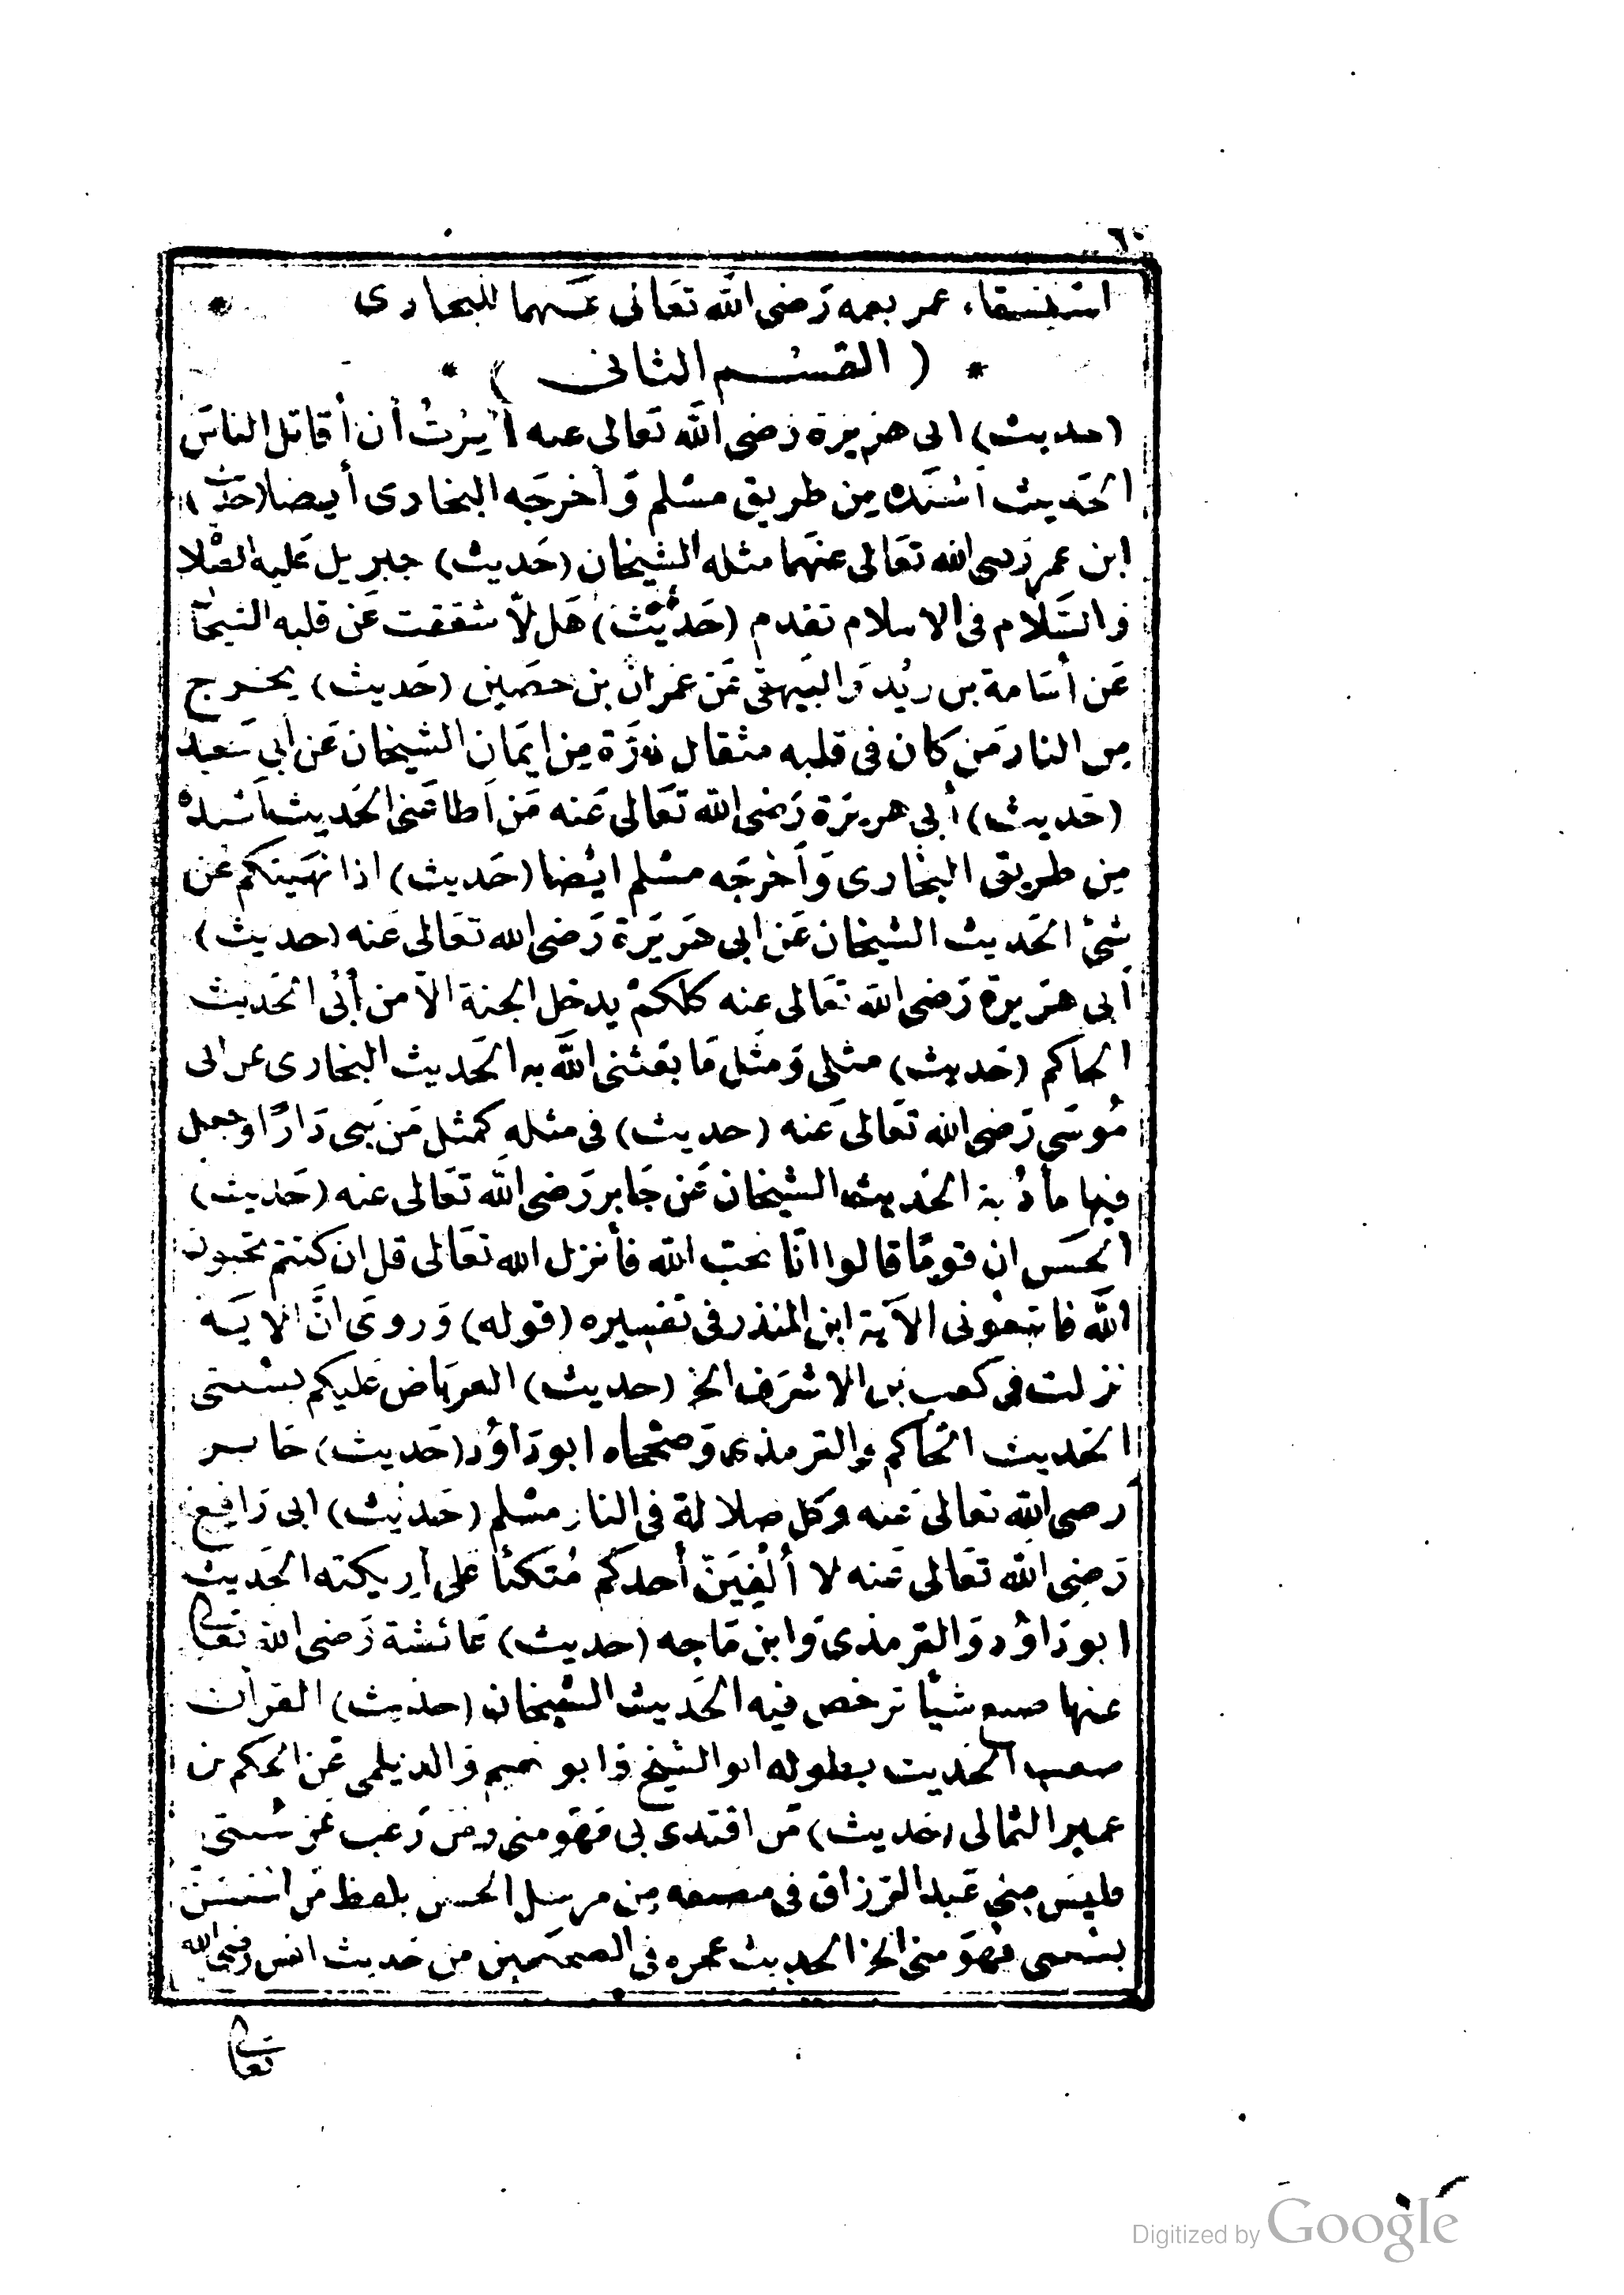 ٦٠
استسقاء عمر بعمه رَضى الله تعَالى عَنهما للبخارى *
* (القسْم الثانى) *
(حديث) ابى هرَيرَة رَضى الله تعَالى عنه أمِرْتُ أن أقاتل الناسَ
الحَديث أسْنَدَه مِن طريق مسْلم وَأخرجَه البخارى أيضا (حَديث)
ابن عمر رَضى الله تعَالى عنهَما مثله الشيخان (حَديث) جبريل عَليه الصَّلا
وَالسَّلام فى الاسلام تقدم (حَديث) هَلاّ شققت عَن قلبه الشيخا
عَن أسَامة بن زيْد وَالبَيهقى عَن عمرَان بن حصَين (حَديث) يخرج
مِن النار مَن كان فى قلبه مثقال ذرَّة مِن ايمَان الشيخان عَن أبى سَعيد
(حَديث) أبى هريرَة رَضى الله تعَالى عَنه مَن أطاعَنى الحَديث أسْنده
مِن طريق البخارى وَأخرجَه مسْلم ايْضا (حَديث) اذا نهَيتكم عَن
شئ الحَديث الشيخان عَن ابى هرَيرَة رَضى الله تعَالى عَنه (حديث)
أبى هرَيرة رَضى الله تعَالى عنه كلكمْ يدخل الجنة الاّ من أبَى الحَديث
الحاكم (حَديث) مثلى وَمثل مَا بعَثنى اللَّه به الحَديث البخارى عن ابى
مُوسَى رَضى الله تعَالى عَنه (حديث) فى مثله كمثل مَن بَنى دَارًا وجعل
فيها مأدُبة الحَديث الشيخان عَن جَابر رَضى الله تعَالى عنه (حَديث)
الحَسَن ان قومًا قالوا انّا نحبّ الله فأنزل الله تعَالى قل ان كنتم تحبون
اللَّه فاتبعُونى الآيَة ابن المنذر فى تفسيره (قوله) وَروىَ انَّ الايَة
نزلت فى كعب بن الاشرَف الخ (حديث) العربَاض عَليكم بسُنتى
الحَديث الحَاكم وَالترمذى وَصَحّحاه ابو دَاوُد (حَديث) جَابر
رضى الله تعالى عَنه وَكل ضلالة فى النار مسْلم (حَديث) ابى رَافِع
رَضِى الله تعَالى عَنه لا ألْفِيَنّ أحدكم مُتكئًا عَلى أريكته الحَديث
ابو دَاوُد وَالترمذى وَابن مَاجه (حديث) عَائشة رَضى الله تعَالى
عنها صنع شيأ ترخص فيه الحَديث الشيخان (حَديث) القرآن
صعب الحَديث بطوله ابو الشيخ وَابو نعيم وَالديلمى عَن الحكم بن
عمير الثمالى (حَديث) مَن اقتدى بى فهَو منى ومَن رَغب عَن سُنتى
فليسَ مِنى عَبد الرَزاق فى مصنفه مِن مرسل الحسن بلفظ مَن استَنَّ
بسُنتى فهَو منى الخ الحديث عجزه فى الصحيحين من حَديث انس رَضى الله
تعالى
Digitized by Google